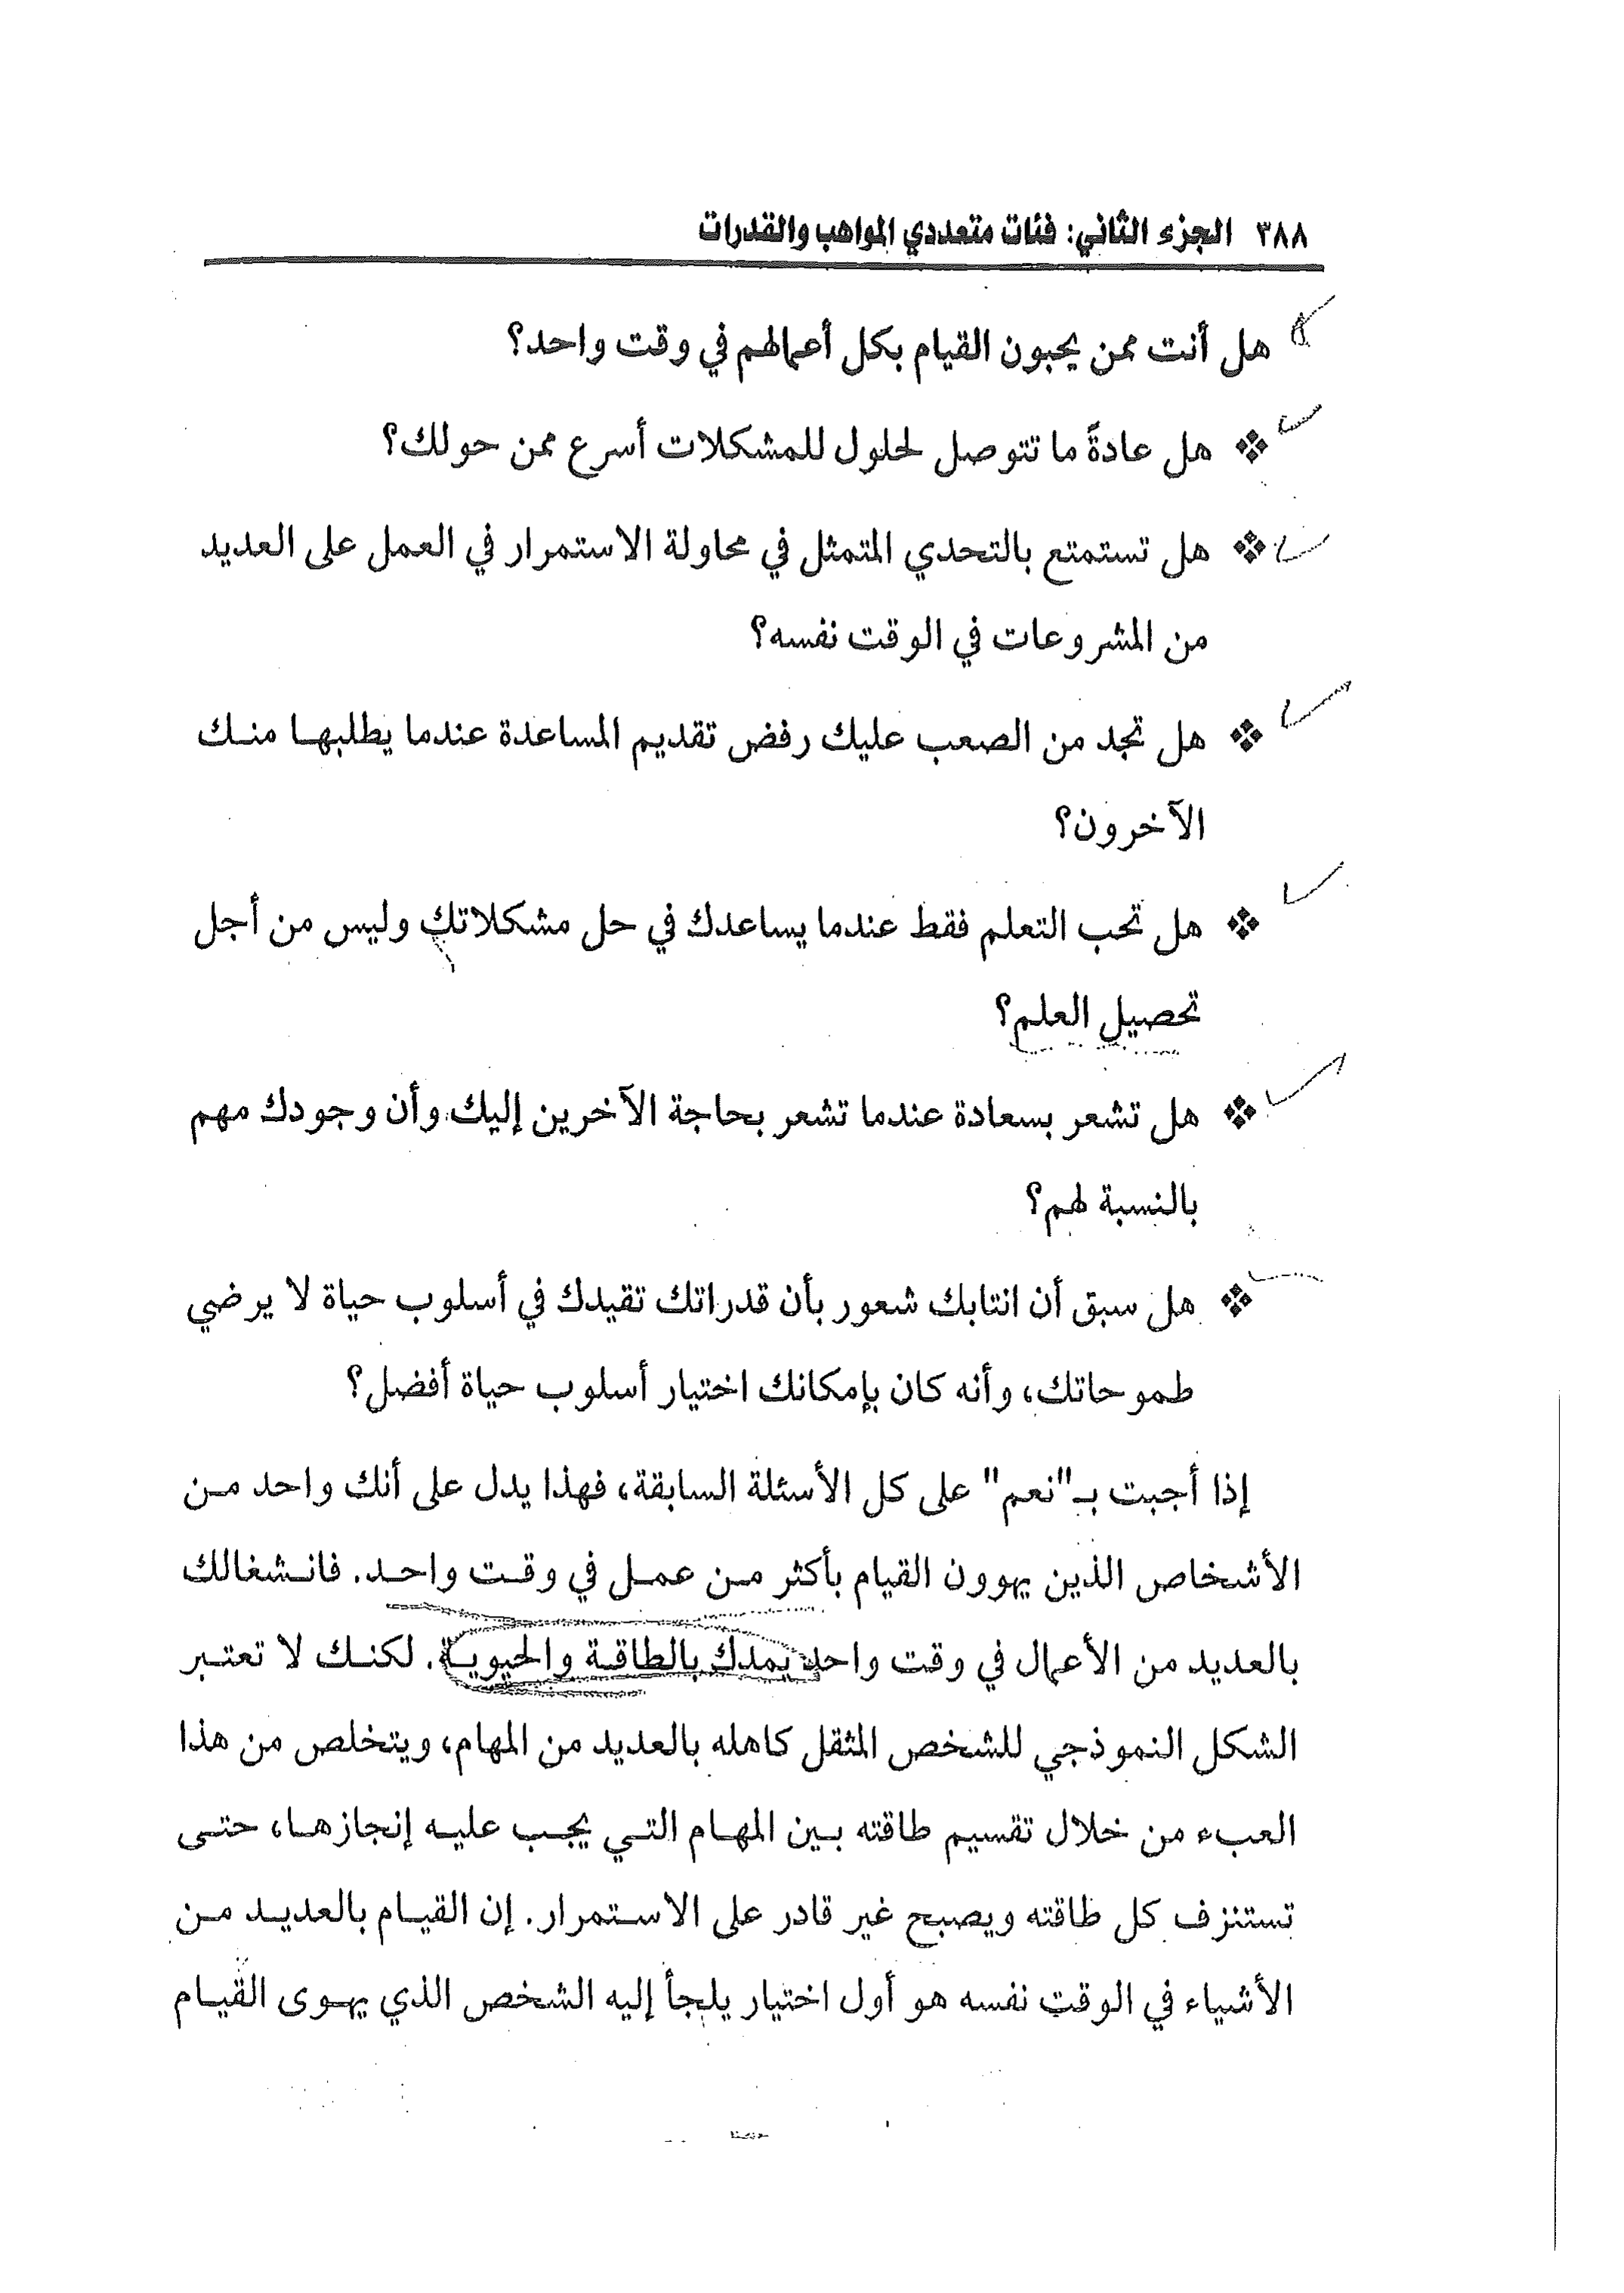 ٣٨٨ الجزء الثاني: فئات متعددي المواهب والقدرات
هل أنت ممن يحبون القيام بكل أعمالهم في وقت واحد؟
❖ هل عادةً ما تتوصل لحلول للمشكلات أسرع ممن حولك؟
❖ هل تستمتع بالتحدي المتمثل في محاولة الاستمرار في العمل على العديد
من المشروعات في الوقت نفسه؟
❖ هل تجد من الصعب عليك رفض تقديم المساعدة عندما يطلبها منك
الآخرون؟
❖ هل تحب التعلم فقط عندما يساعدك في حل مشكلاتك وليس من أجل
تحصيل العلم؟
❖ هل تشعر بسعادة عندما تشعر بحاجة الآخرين إليك وأن وجودك مهم
بالنسبة لهم؟
❖ هل سبق أن انتابك شعور بأن قدراتك تقيدك في أسلوب حياة لا يرضي
طموحاتك، وأنه كان بإمكانك اختيار أسلوب حياة أفضل؟
إذا أجبت بـ"نعم" على كل الأسئلة السابقة، فهذا يدل على أنك واحد من
الأشخاص الذين يهوون القيام بأكثر من عمل في وقت واحد. فانشغالك
بالعديد من الأعمال في وقت واحد يمدك بالطاقة والحيوية. لكنك لا تعتبر
الشكل النموذجي للشخص المثقل كاهله بالعديد من المهام، ويتخلص من هذا
العبء من خلال تقسيم طاقته بين المهام التي يجب عليه إنجازها، حتى
تستنزف كل طاقته ويصبح غير قادر على الاستمرار. إن القيام بالعديد من
الأشياء في الوقت نفسه هو أول اختيار يلجأ إليه الشخص الذي يهوى القيام